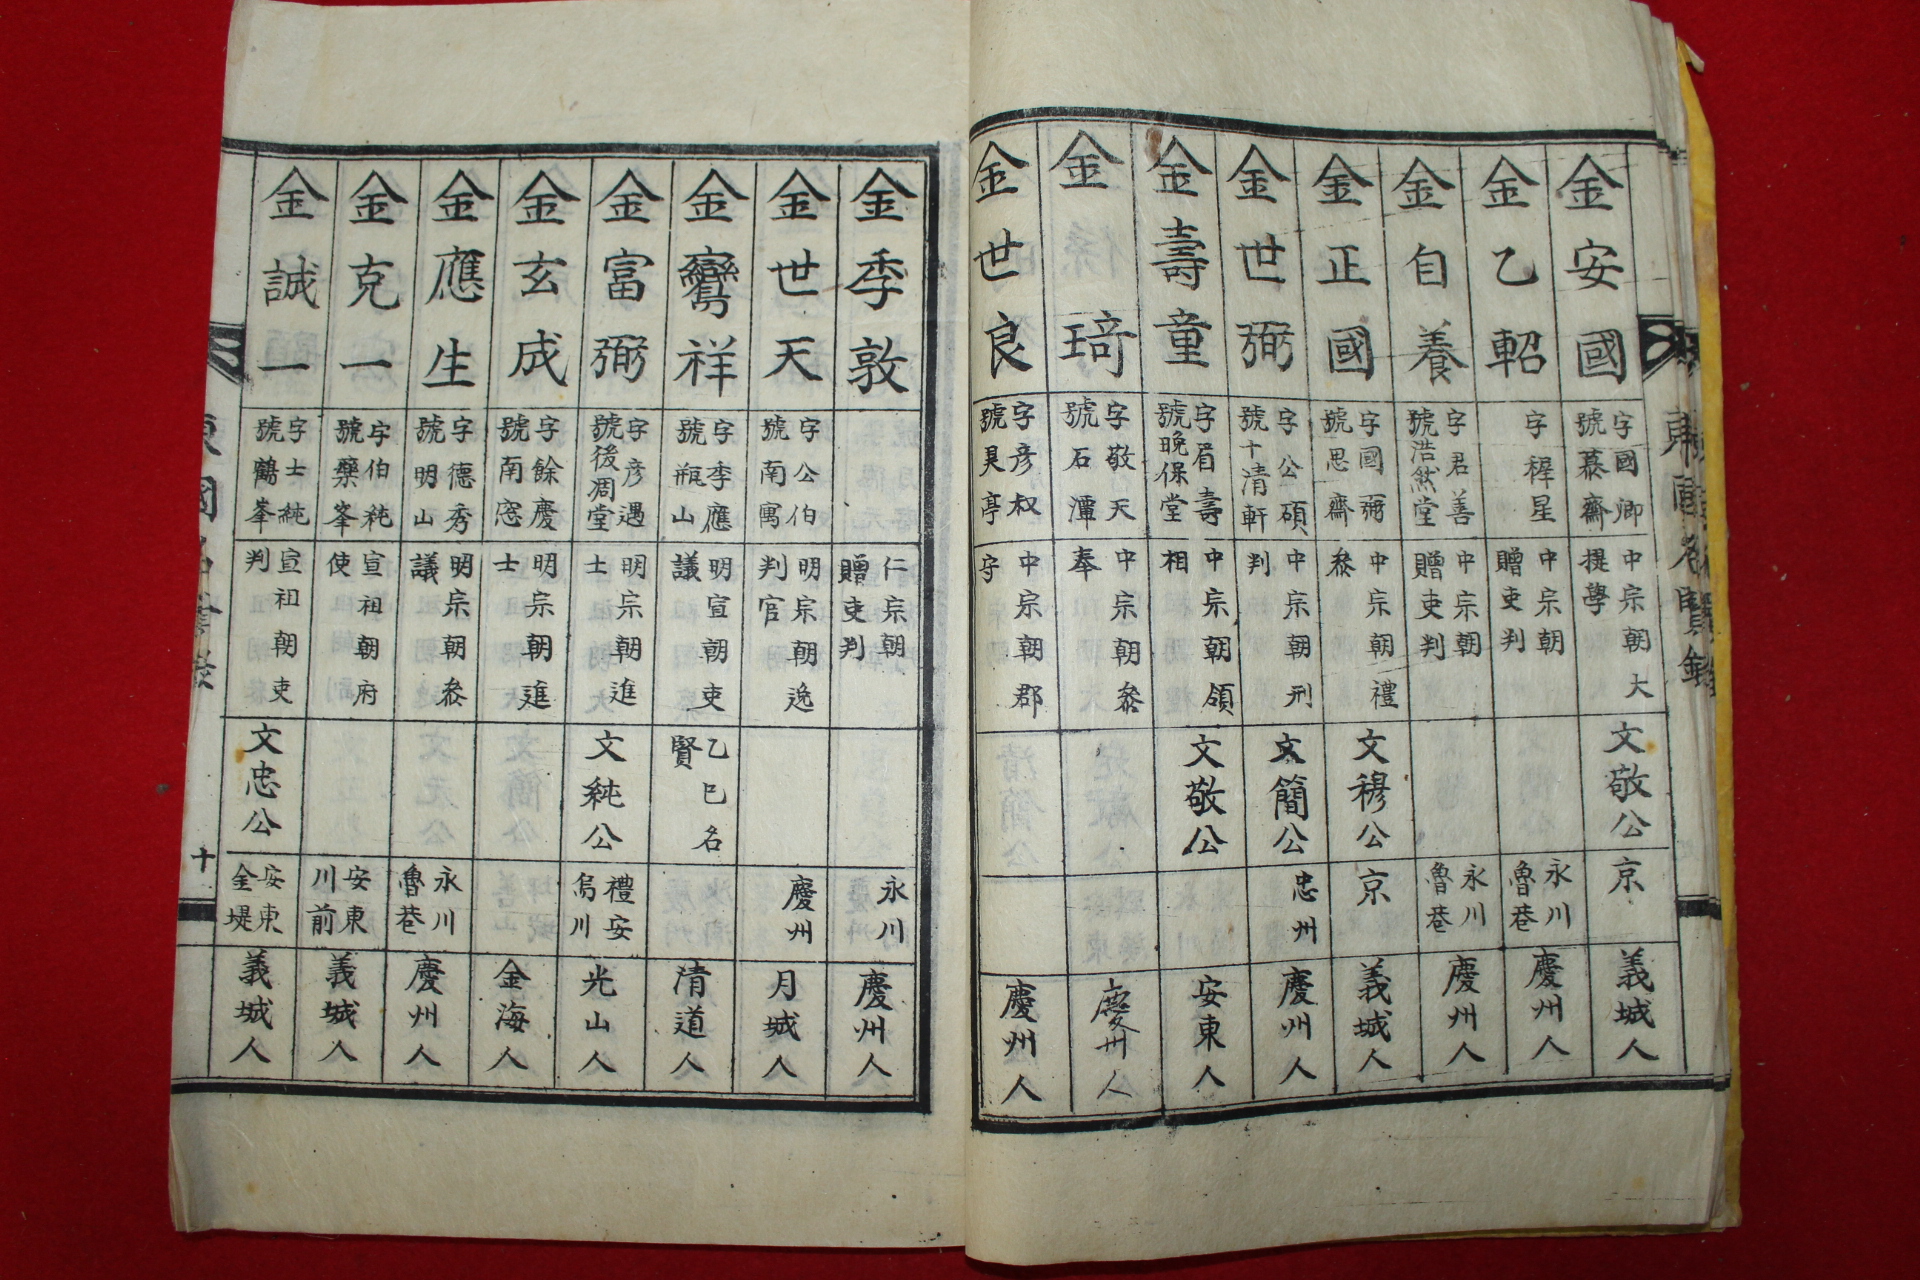 金安國 字國卿 號慕齋 中宗朝大提學 文敬公 京 義城人
金乙軺 字穉星 中宗朝贈吏判 永川魯巷 慶州人
金自養 字君善 號浩然堂 中宗朝贈吏判 永川魯巷 慶州人
金正國 字國弼 號思齋 中宗朝禮參 文穆公 京 義城人
金世弼 字公碩 號十清軒 中宗朝刑判 文簡公 忠州 慶州人
金壽童 字眉壽 號晚保堂 中宗朝領相 文敬公 安東人
金琦 字敬天 號石潭 中宗朝參奉 慶州人
金世良 字彦叔 號昊亭 中宗朝郡守 慶州人
金季敦 仁宗朝贈吏判 永川 慶州人
金世天 字公伯 號南寓 明宗朝逸判官 慶州 月城人
金鸞祥 字季應 號瓶山 明宣朝吏議 乙巳名賢 清道人
金富弼 字彦遇 號後凋堂 明宗朝進士 文純公 禮安烏川 光山人
金玄成 字餘慶 號南窓 明宗朝進士 金海人
金應生 字德秀 號明山 明宗朝參議 永川魯巷 慶州人
金克一 字伯純 號藥峯 宣祖朝府使 安東川前 義城人
金誠一 字士純 號鶴峯 宣祖朝吏判 文忠公 安東金堤 義城人
十